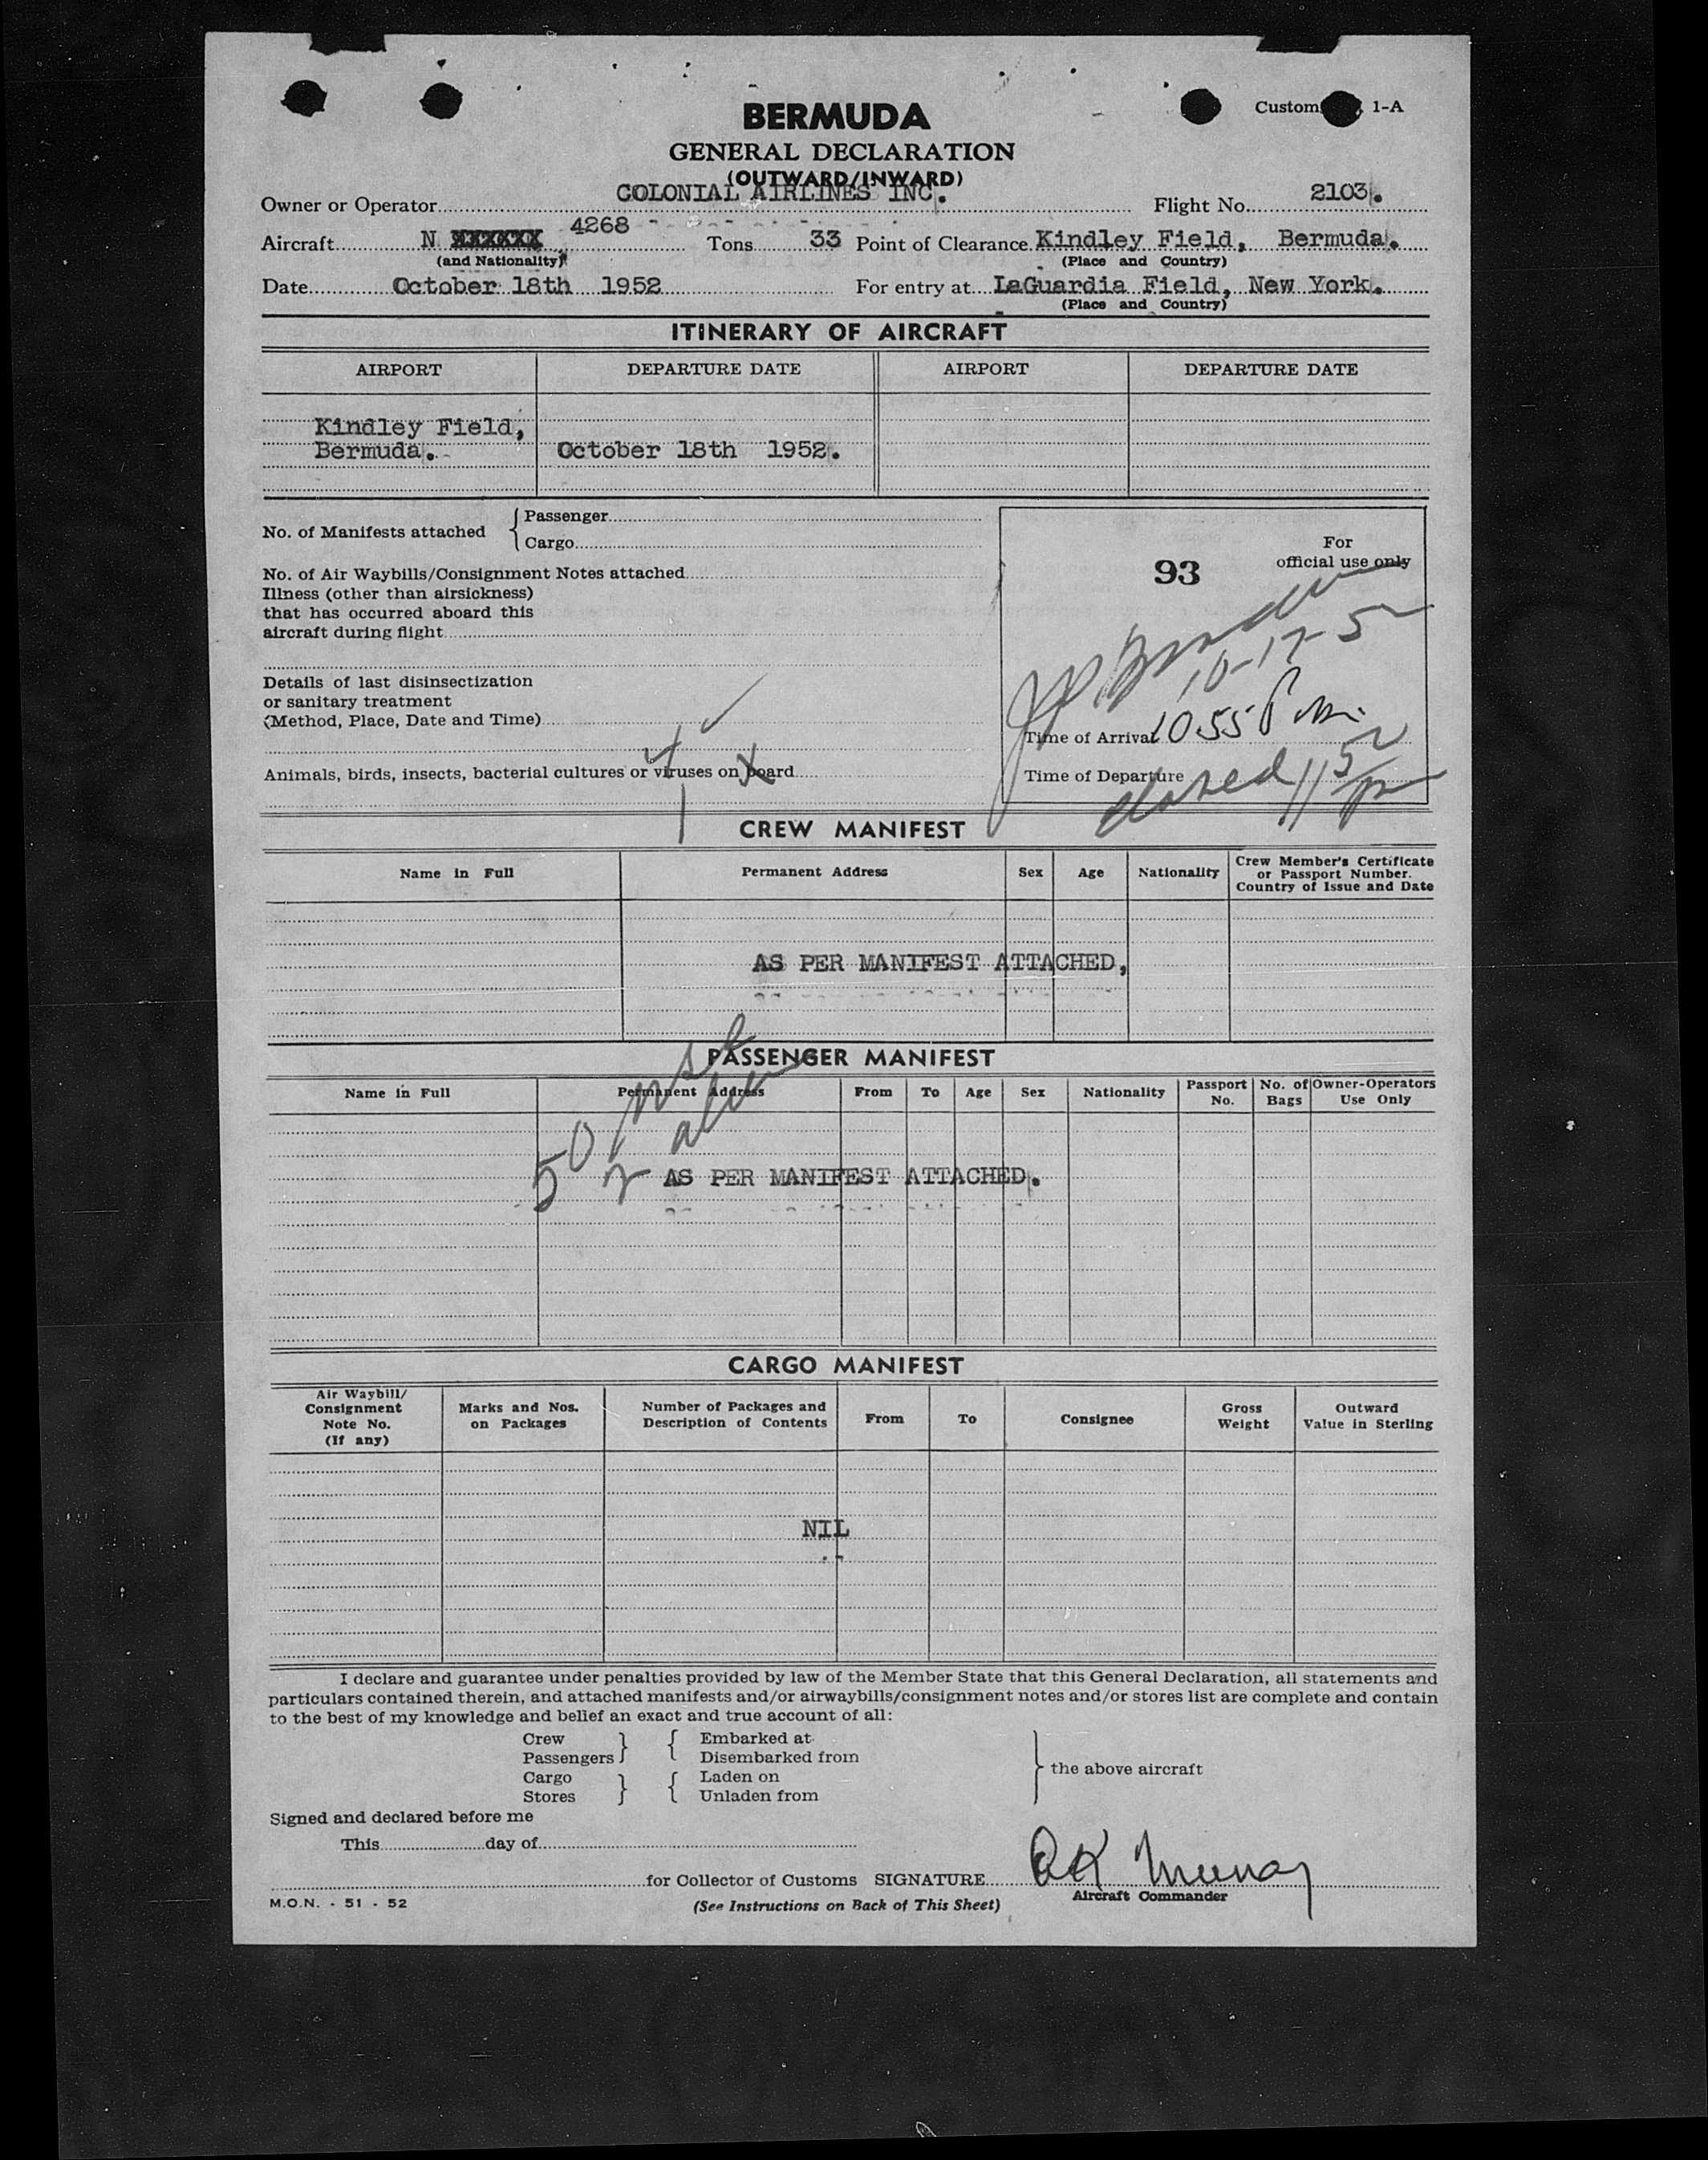 Customs 1-A
BERMUDA
GENERAL DECLARATION
(OUTWARD/INWARD)
Owner or Operator COLONIAL AIRLINES INC. Flight No. 2103.
Aircraft N XXXXXX 4268 Tons 33 Point of Clearance Kindley Field, Bermuda.
(and Nationality) (Place and Country)
Date October 18th 1952 For entry at LaGuardia Field, New York.
(Place and Country)
ITINERARY OF AIRCRAFT
AIRPORT DEPARTURE DATE AIRPORT DEPARTURE DATE
Kindley Field,
Bermuda. October 18th 1952.
No. of Manifests attached { Passenger
Cargo
For
official use only
93
No. of Air Waybills/Consignment Notes attached
Illness (other than airsickness)
that has occurred aboard this
aircraft during flight
10-17-52
Details of last disinsectization
or sanitary treatment
(Method, Place, Date and Time)
Time of Arrival 10.55 Pm.
Animals, birds, insects, bacterial cultures or viruses on board
Time of Departure
closed 11 5
CREW MANIFEST
Name in Full Permanent Address Sex Age Nationality Crew Member's Certificate
or Passport Number.
Country of Issue and Date
AS PER MANIFEST ATTACHED,
PASSENGER MANIFEST
Name in Full Permanent Address From To Age Sex Nationality Passport No. No. of Bags Owner-Operators Use Only
50
2
AS PER MANIFEST ATTACHED.
CARGO MANIFEST
Air Waybill/
Consignment
Note No.
(If any)
Marks and Nos.
on Packages
Number of Packages and
Description of Contents
From To Consignee Gross
Weight
Outward
Value in Sterling
NIL
I declare and guarantee under penalties provided by law of the Member State that this General Declaration, all statements and
particulars contained therein, and attached manifests and/or airwaybills/consignment notes and/or stores list are complete and contain
to the best of my knowledge and belief an exact and true account of all:
Crew } { Embarked at
Passengers Disembarked from
Cargo } { Laden on
Stores Unladen from
} the above aircraft
Signed and declared before me
This day of
for Collector of Customs SIGNATURE
Aircraft Commander
M.O.N. - 51 - 52 (See Instructions on Back of This Sheet)